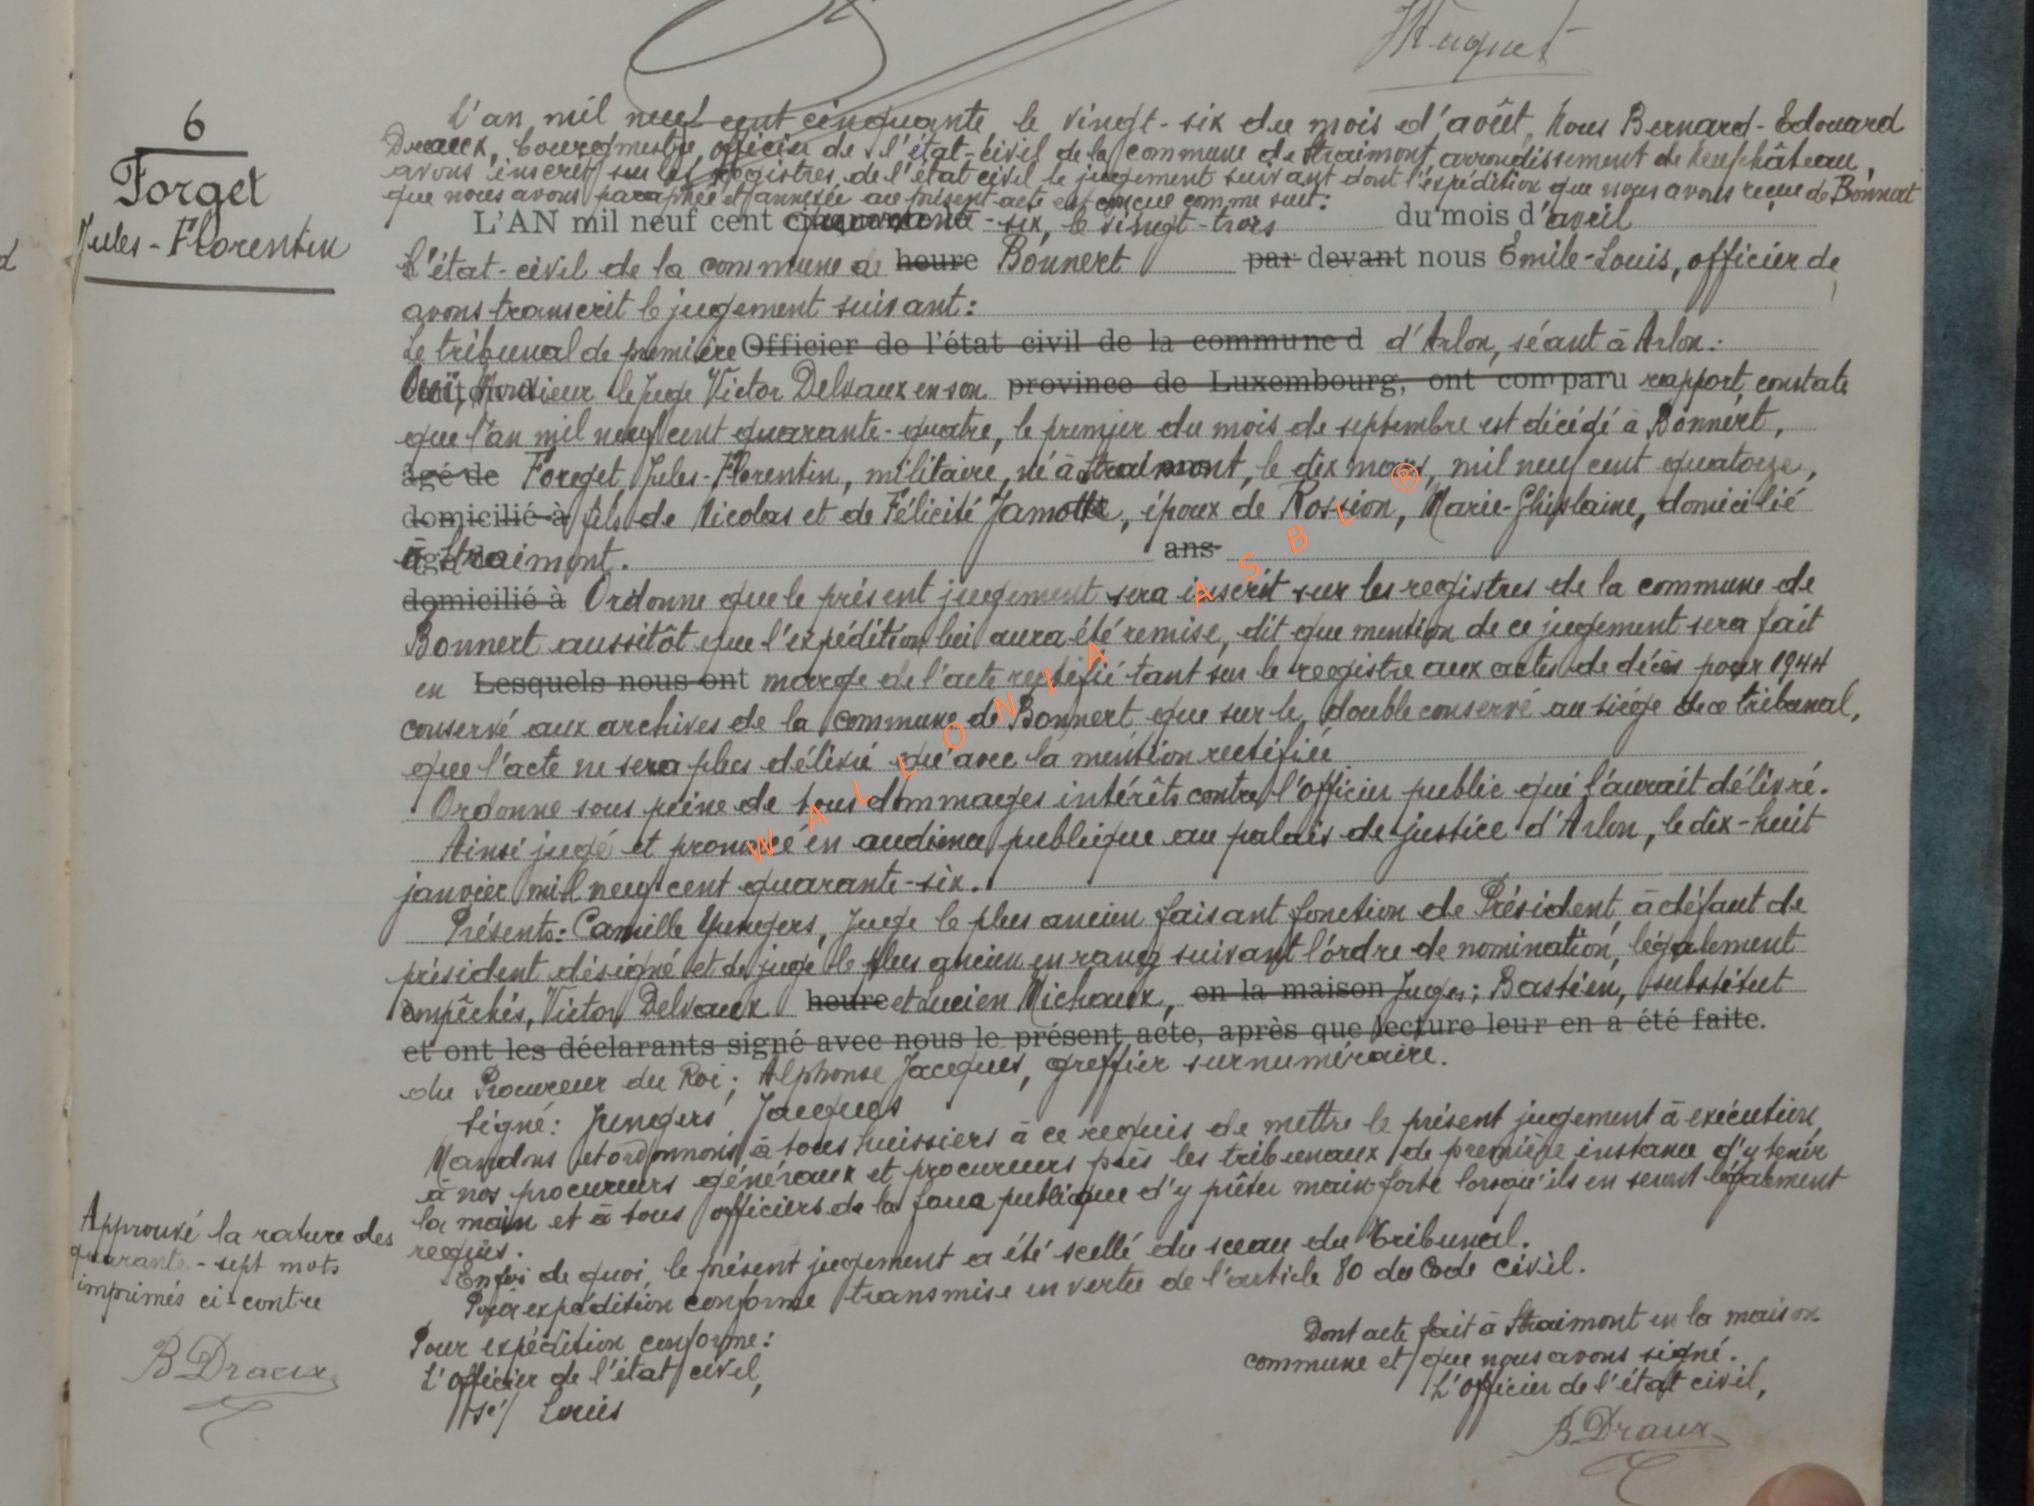 Huquet
6
Forget
Jules-Florentin
L'an mil neuf cent cinquante, le vingt-six du mois d'août, Nous Bernard-Edouard
Draux, bourgmestre, officier de l'état-civil de la commune de Straimont, arrondissement de Neufchâteau,
avons inscrit sur les registres de l'état civil le jugement suivant dont l'expédition que nous avons reçue de Bonnert
que nous avons paraphée et annexée au présent acte est conçue comme suit:
L'AN mil neuf cent quarante-six, le vingt-trois du mois d'avril
l'état-civil de la commune de heure Bonnert par devant nous Emile-Louis, officier de
avons transcrit le jugement suivant:
Le tribunal de première Officier de l'état civil de la commune d d'Arlon, séant à Arlon:
Ouï, Monsieur le Juge Victor Delvaux en son province de Luxembourg, ont comparu rapport, constate
que l'an mil neuf cent quarante-quatre, le premier du mois de septembre est décédé à Bonnert,
âgé de Forget, Jules-Florentin, militaire, né à Straimont, le dix mars, mil neuf cent quatorze,
domicilié à fils de Nicolas et de Félicité Jamotte, époux de Rossion, Marie-Ghislaine, domicilié
à Straimont. ans
domicilié à Ordonne que le présent jugement sera inscrit sur les registres de la commune de
Bonnert aussitôt que l'expédition lui aura été remise, dit que mention de ce jugement sera fait
en Lesquels nous ont marge de l'acte rectifié tant sur le registre aux actes de décès pour 1944
conservé aux archives de la commune de Bonnert que sur le double conservé au siège de ce tribunal,
que l'acte ne sera plus délivré qu'avec la mention rectifiée
Ordonne sous peine de tous dommages intérêts contre l'officier public qui l'aurait délivré.
Ainsi jugé et prononcé en audience publique au palais de justice d'Arlon, le dix-huit
janvier mil neuf cent quarante-six.
Présents: Camille Jungers, Juge le plus ancien faisant fonction de Président, à défaut de
président désigné et de juge le plus ancien en rang suivant l'ordre de nomination, légalement
empêchés, Victor Delvaux heure et Lucien Michaux, en la maison Juges; Bastien, substitut
et ont les déclarants signé avec nous le présent acte, après que lecture leur en a été faite.
du Procureur du Roi; Alphonse Jacques, greffier surnuméraire.
Signé: Jungers Jacques
Mandons et ordonnons à tous huissiers à ce requis de mettre le présent jugement à exécution,
à nos procureurs généraux et procureurs près les tribunaux de première instance d'y tenir
la main et à tous officiers de la force publique d'y prêter main forte lorsqu'ils en seront légalement
requis.
En foi de quoi, le présent jugement a été scellé du sceau du Tribunal.
Pour expédition conforme transmise en vertu de l'article 80 du Code civil.
Pour expédition conforme:
L'officier de l'état civil,
sé/ Louis
Dont acte fait à Straimont en la maison
commune et que nous avons signé.
L'officier de l'état civil,
B Draux
Approuvé la rature des
quarante-sept mots
imprimés ci-contre
B Draux
WALLONIA ASBL ®